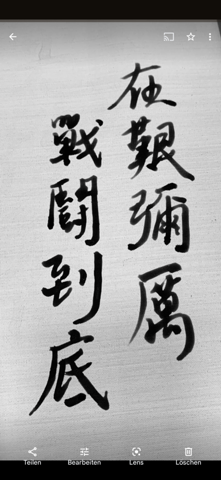 在艱彌厲
戰鬪到底
Teilen
Bearbeiten
Lens
Löschen